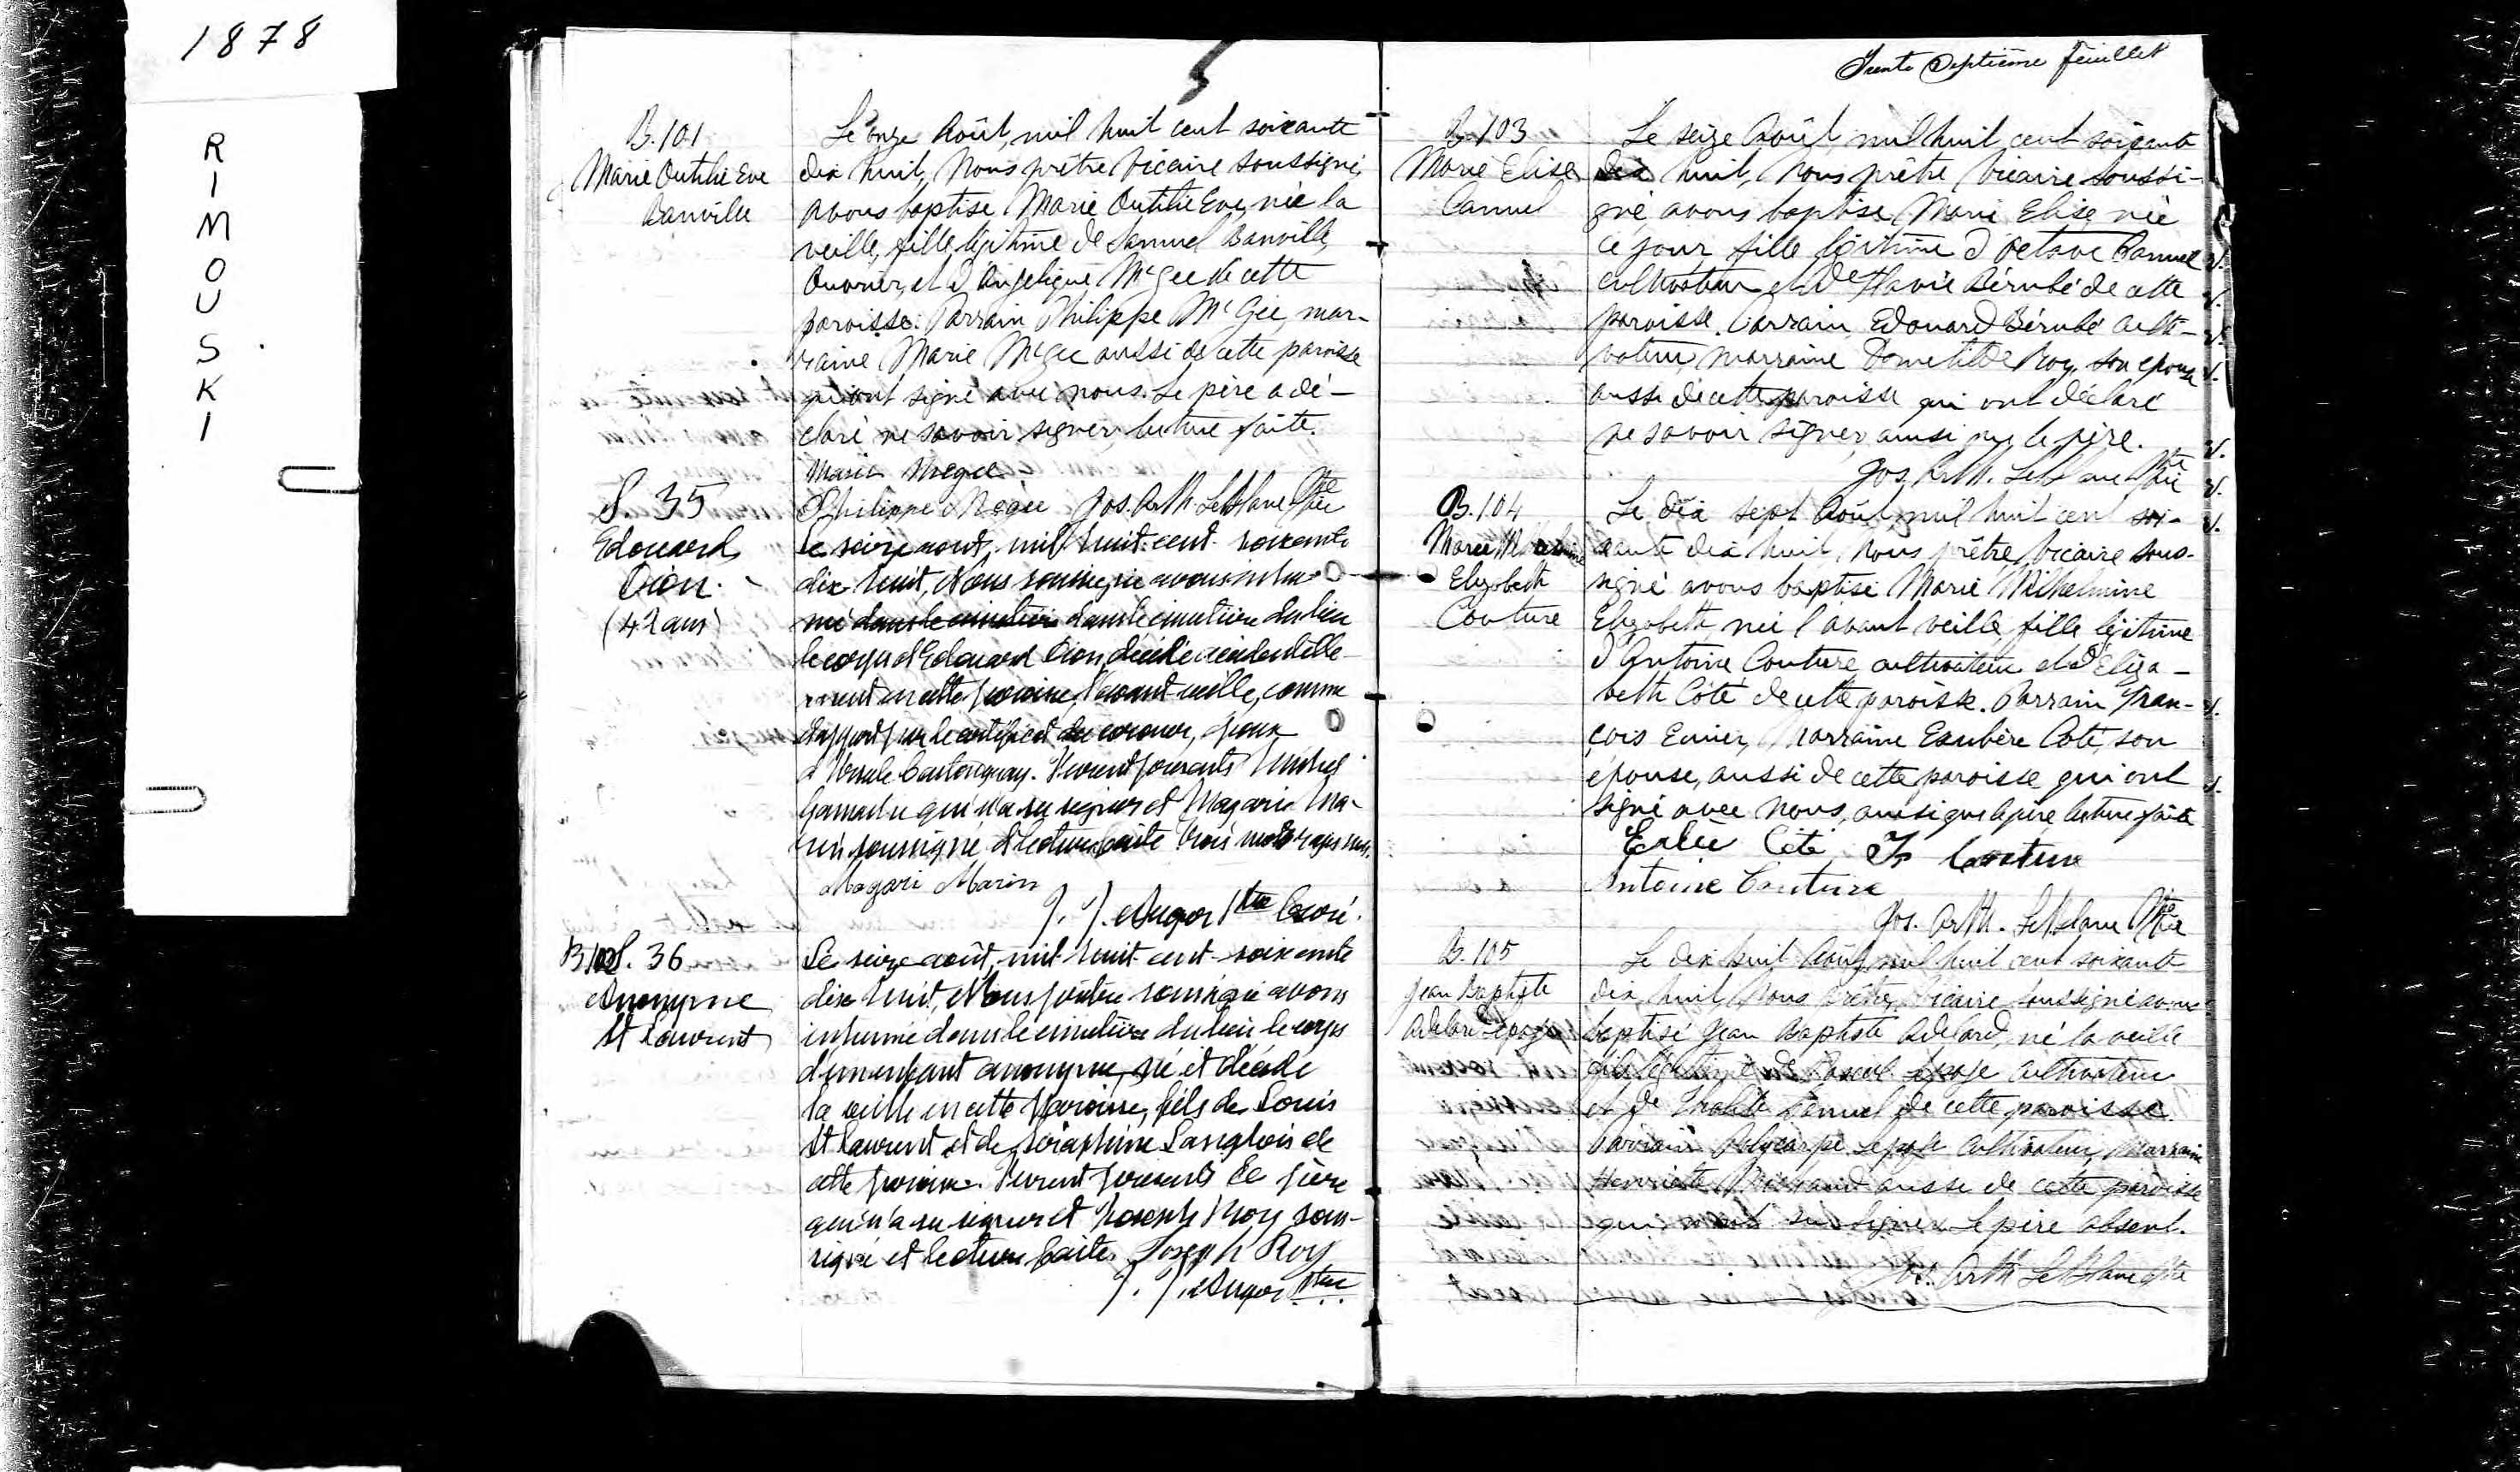 1878
RIMOUSKI
B. 101
Marie Outilie Eve
Banville
Le onze Août, mil huit cent soixante
dix huit, Nous prêtre Vicaire soussigné,
avons baptisé Marie Outilie Eve, née la
veille, fille légitime de Samuel Banville,
Ouvrier, et d'Angelique McGee de cette
paroisse. Parrain Philippe McGee, mar-
raine Marie McGee aussi de cette paroisse
qui ont signé avec nous. Le père a dé-
claré ne savoir signer, lecture faite.
Marie Megee
Philippe Megee Jos. Arth. LeBlanc Ptre Vic
S. 35
Edouard
Dion.
(42 ans)
Le seize aout, mil huit cent soixante
dix huit, Nous soussigné avons inhu-
mé dans le cimetière dans le cimetière du lieu
le corps d'Edouard Dion, décédé accidentelle-
ment en cette paroisse, l'avant veille, comme
il appert par le certificat du coroner, époux
d'Ursule Castonguay. Furent présents Michel
Gamache qui n'a su signer et Magarie Ma-
rin soussigné et lecture faite trois mots rayés nuls.
Magari Marin
J. J. Auger Ptre Curé.
B 102 S. 36
Anonyme
St Laurent
Le seize août, mil huit cent soixante
dix huit, Nous prêtre soussigné avons
inhumé dans le cimetière du lieu le corps
d'un enfant anonyme, né et décédé
la veille en cette paroisse, fils de Louis
St Laurent et de Séraphine Langlois de
cette paroisse. Furent présents le père
qui n'a su signer et Joseph Roy sous-
signé et lecture faite. Joseph Roy
J. J. Auger Ptre
Trente Septième feuillet
B 103
Marie Elise
Canuel
Le seize Août, mil huit cent soixante
dix huit, Nous prêtre Vicaire soussi-
gné avons baptisé Marie Elise, née
ce jour, fille légitime d'Octave Canuel
cultivateur et de Flavie Bérubé de cette
paroisse. Parrain Edouard Bérubé culti-
vateur, marraine Dometilde Roy, son épouse
aussi de cette paroisse qui ont déclaré
ne savoir signer, ainsi que le père.
Jos. Arth. LeBlanc Ptre Vic
B. 104
Marie Wilhelmine
Elizabeth
Couture
Le dix sept Août, mil huit cent soi-
xante dix huit, Nous prêtre Vicaire sous-
signé avons baptisé Marie Wilhelmine
Elizabeth, née l'avant veille, fille légitime
d'Antoine Couture, cultivateur et d'Eliza-
beth Côté de cette paroisse. Parrain Fran-
çois Marraine Exubère Côté, son
épouse, aussi de cette paroisse qui ont
signé avec nous, ainsi que le père, lecture faite
Côté Couture
Antoine Couture
Jos. Arth. LeBlanc Ptre Vic
B. 105
Jean Baptiste
Adelard Lepage
Le dix huit Août, mil huit cent soixante
dix huit, Nous prêtre, Vicaire soussigné avons
baptisé Jean Baptiste Adelard, né la veille
fils légitime de Pascal Lepage cultivateur
et de Canuel de cette paroisse.
Parrain Polycarpe Lepage cultivateur, Marraine
Henriette Michaud aussi de cette paroisse
qui n'ont su signer. Le père absent.
Jos. Arth LeBlanc Ptre